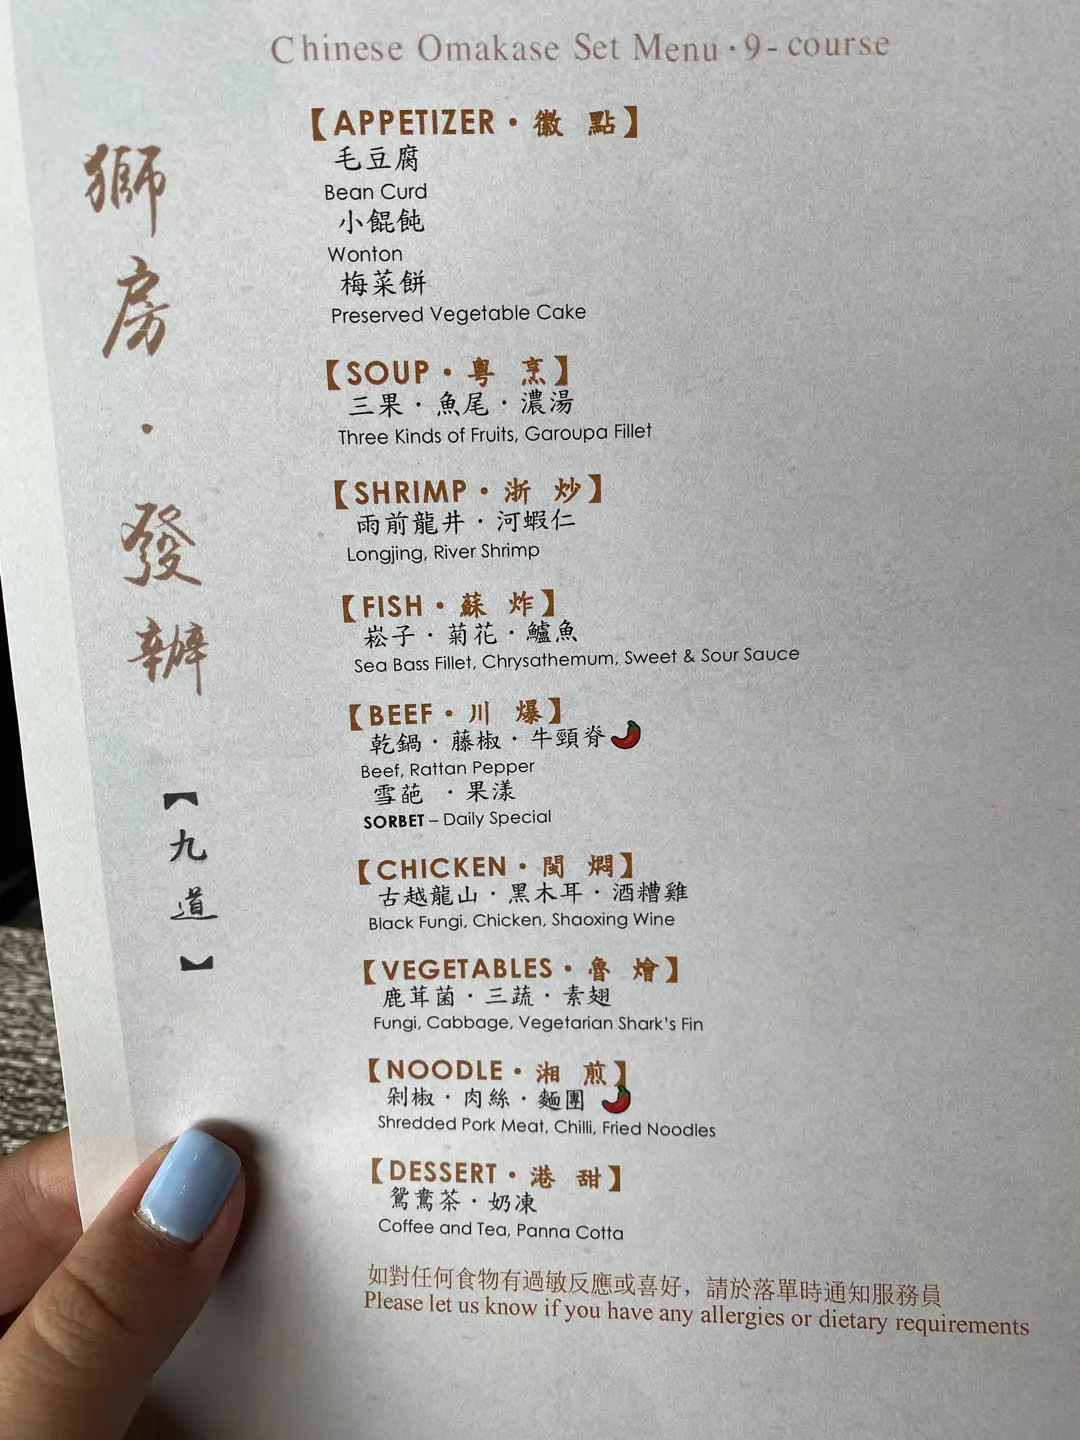 Chinese Omakase Set Menu·9-course
獅房·發辦
【九道】
【APPETIZER·徽 點】
毛豆腐
Bean Curd
小餛飩
Wonton
梅菜餅
Preserved Vegetable Cake
【SOUP·粵 烹】
三果·魚尾·濃湯
Three Kinds of Fruits, Garoupa Fillet
【SHRIMP·浙 炒】
雨前龍井·河蝦仁
Longjing, River Shrimp
【FISH·蘇 炸】
崧子·菊花·鱸魚
Sea Bass Fillet, Chrysathemum, Sweet & Sour Sauce
【BEEF·川 爆】
乾鍋·藤椒·牛頸脊
Beef, Rattan Pepper
雪葩 ·果漾
SORBET – Daily Special
【CHICKEN·閩 燜】
古越龍山·黑木耳·酒糟雞
Black Fungi, Chicken, Shaoxing Wine
【VEGETABLES·魯 燴】
鹿茸菌·三蔬·素翅
Fungi, Cabbage, Vegetarian Shark's Fin
【NOODLE·湘 煎】
剁椒·肉絲·麵團
Shredded Pork Meat, Chilli, Fried Noodles
【DESSERT·港 甜】
鴛鴦茶·奶凍
Coffee and Tea, Panna Cotta
如對任何食物有過敏反應或喜好，請於落單時通知服務員
Please let us know if you have any allergies or dietary requirements